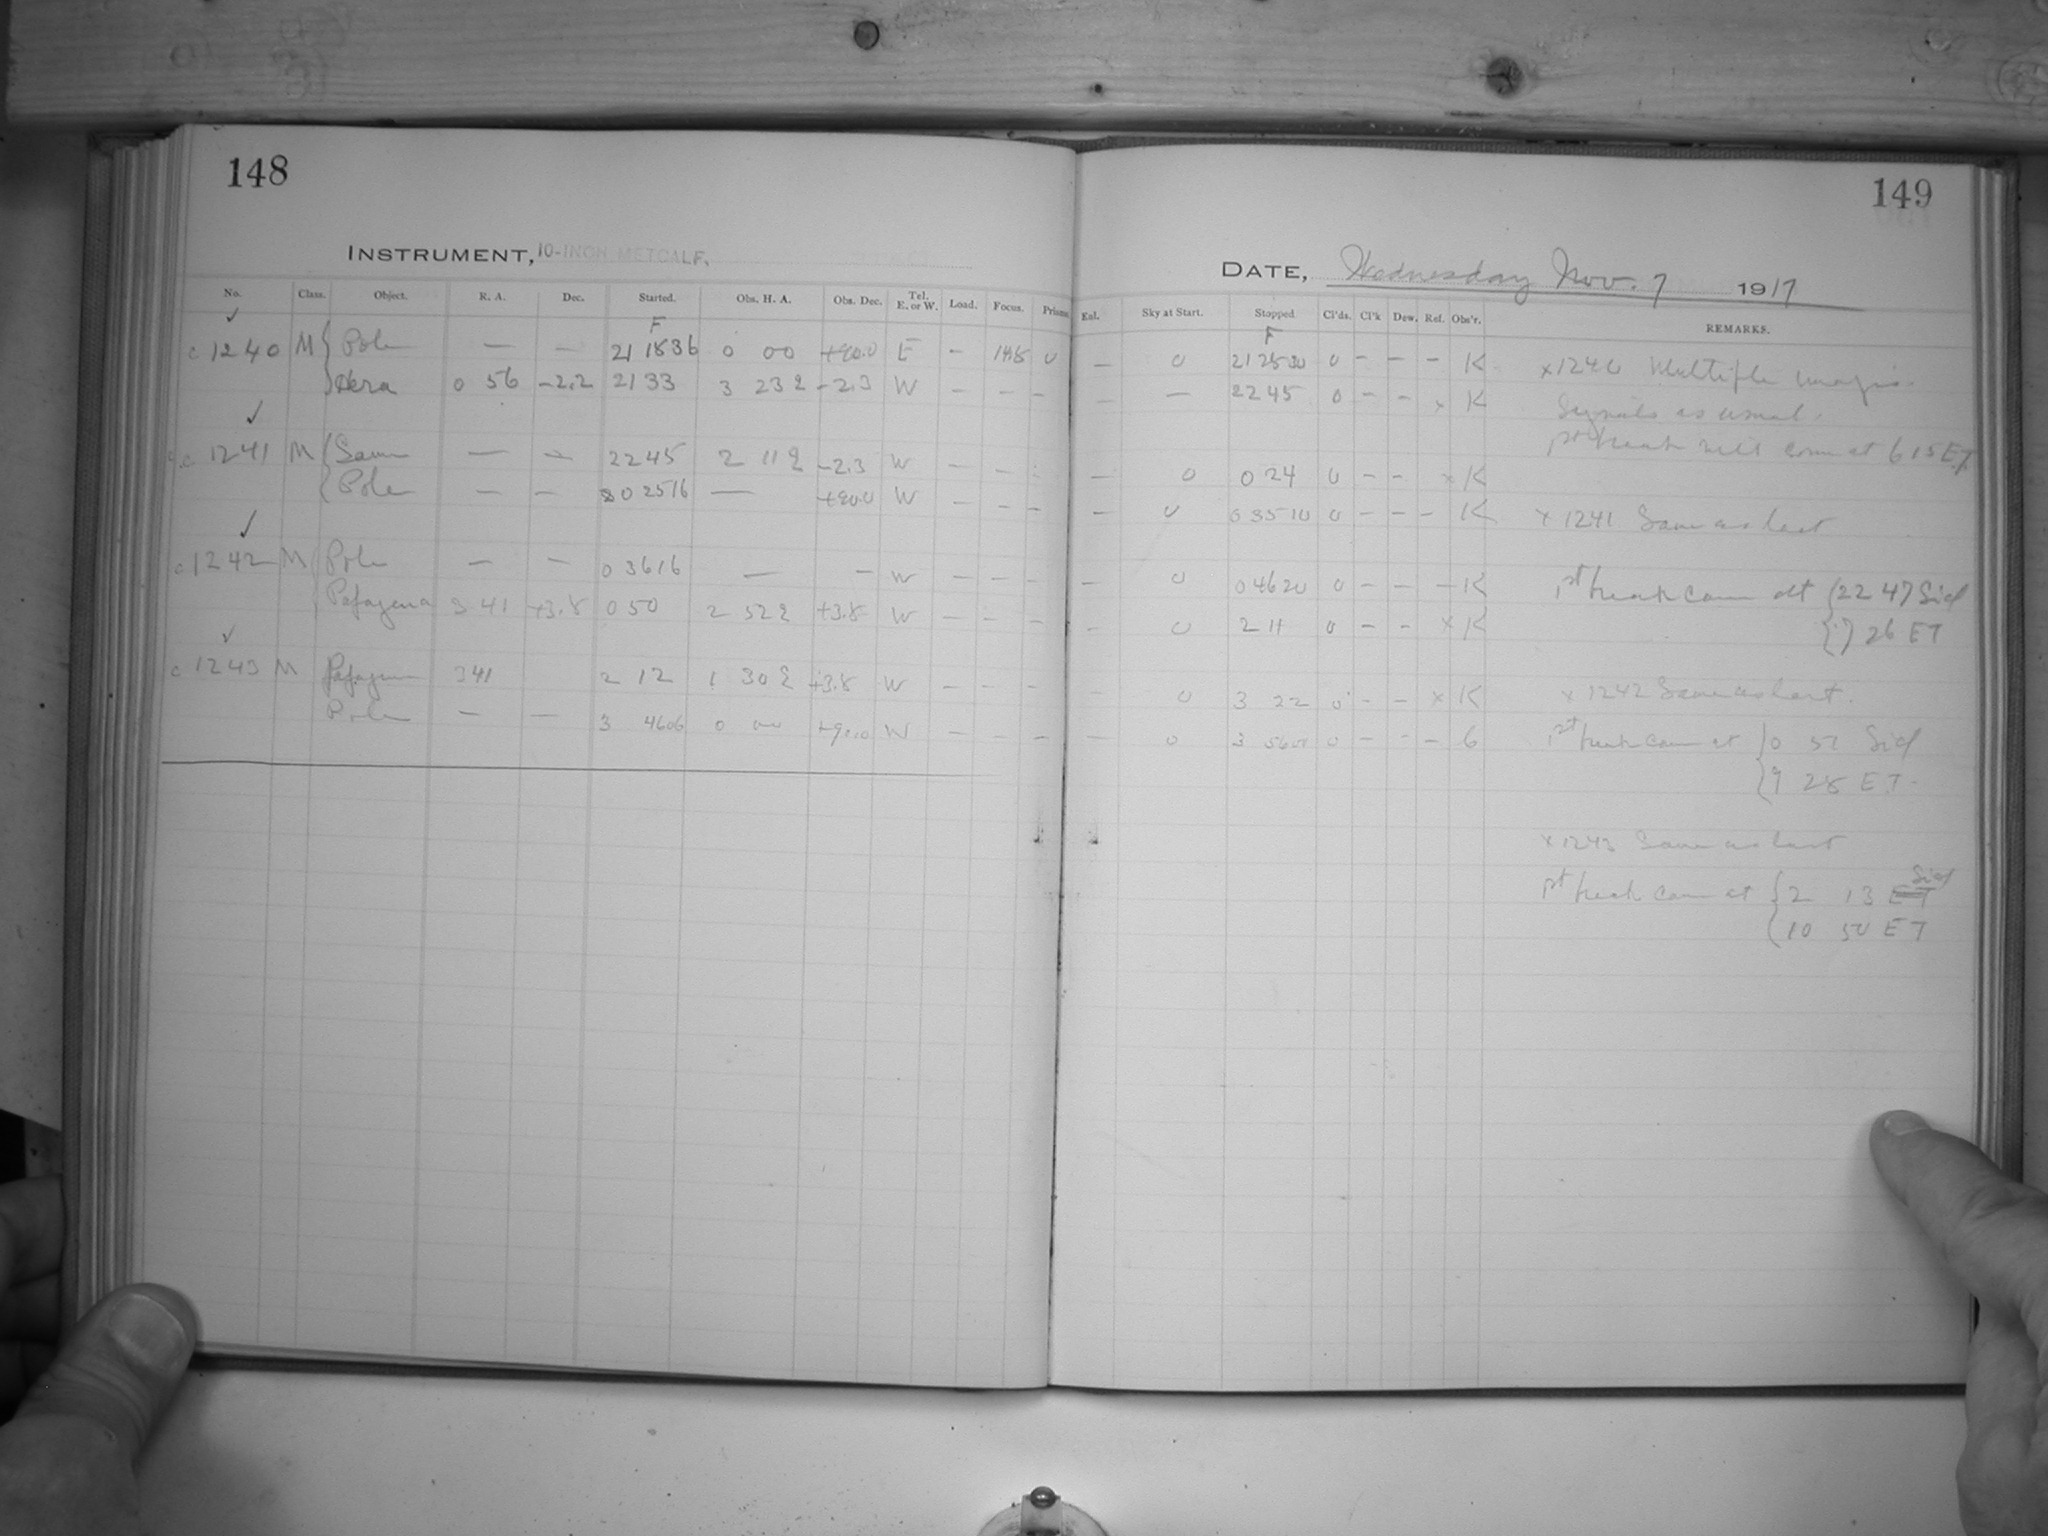 148
149
INSTRUMENT, 10-INCH METCALF.
DATE, Wednesday Nov. 7 1917
No. Class. Object. R. A. Dec. Started. Obs. H. A. Obs. Dec. Tel. E. or W. Load. Focus. Prisms
Enl. Sky at Start. Stopped Cl'ds. Cl'k Dew. Ref. Obs'r. REMARKS.
F
F
c 1240 M { Pole — — 21 18 36 0 00 +90.0 E - 0
— 0 0 - - - K x 1240 Multiple images.
Hera 0 56 -2.2 21 33 3 23 2 -2.3 W - - -
— — 22 45 0 - - x K Signals as usual.
1st break will com at 6 15 E.T.
c 1241 M { Same — — 22 45 2 11 2 -2.3 W - -
— 0 0 24 0 - - x K
{ Pole — — 0 25 16 — +90.0 W - - -
— 0 0 35 10 0 - - - K x 1241 Same as last
c 1242 M { Pole — — 0 36 16 — — W - - -
— 0 0 46 20 0 - - - K 1st break com at { 22 47 Sid
Papagena 3 41 +3.8 0 50 2 52 2 +3.8 W - - -
- 0 2 11 0 - - x K { 7 26 ET
c 1243 M Papagena 3 41 2 12 1 30 2 +3.8 W - - -
- 0 3 22 0 - - x K x 1242 Same as last.
Pole — — 3 46 06 0 00 +90.0 W - - -
— 0 3 0 - - - G 1st break com at { 0 51 Sid
{ 9 28 ET.
x 1243 Same as last
1st break com at { 2 13 Sid
{ 10 50 ET